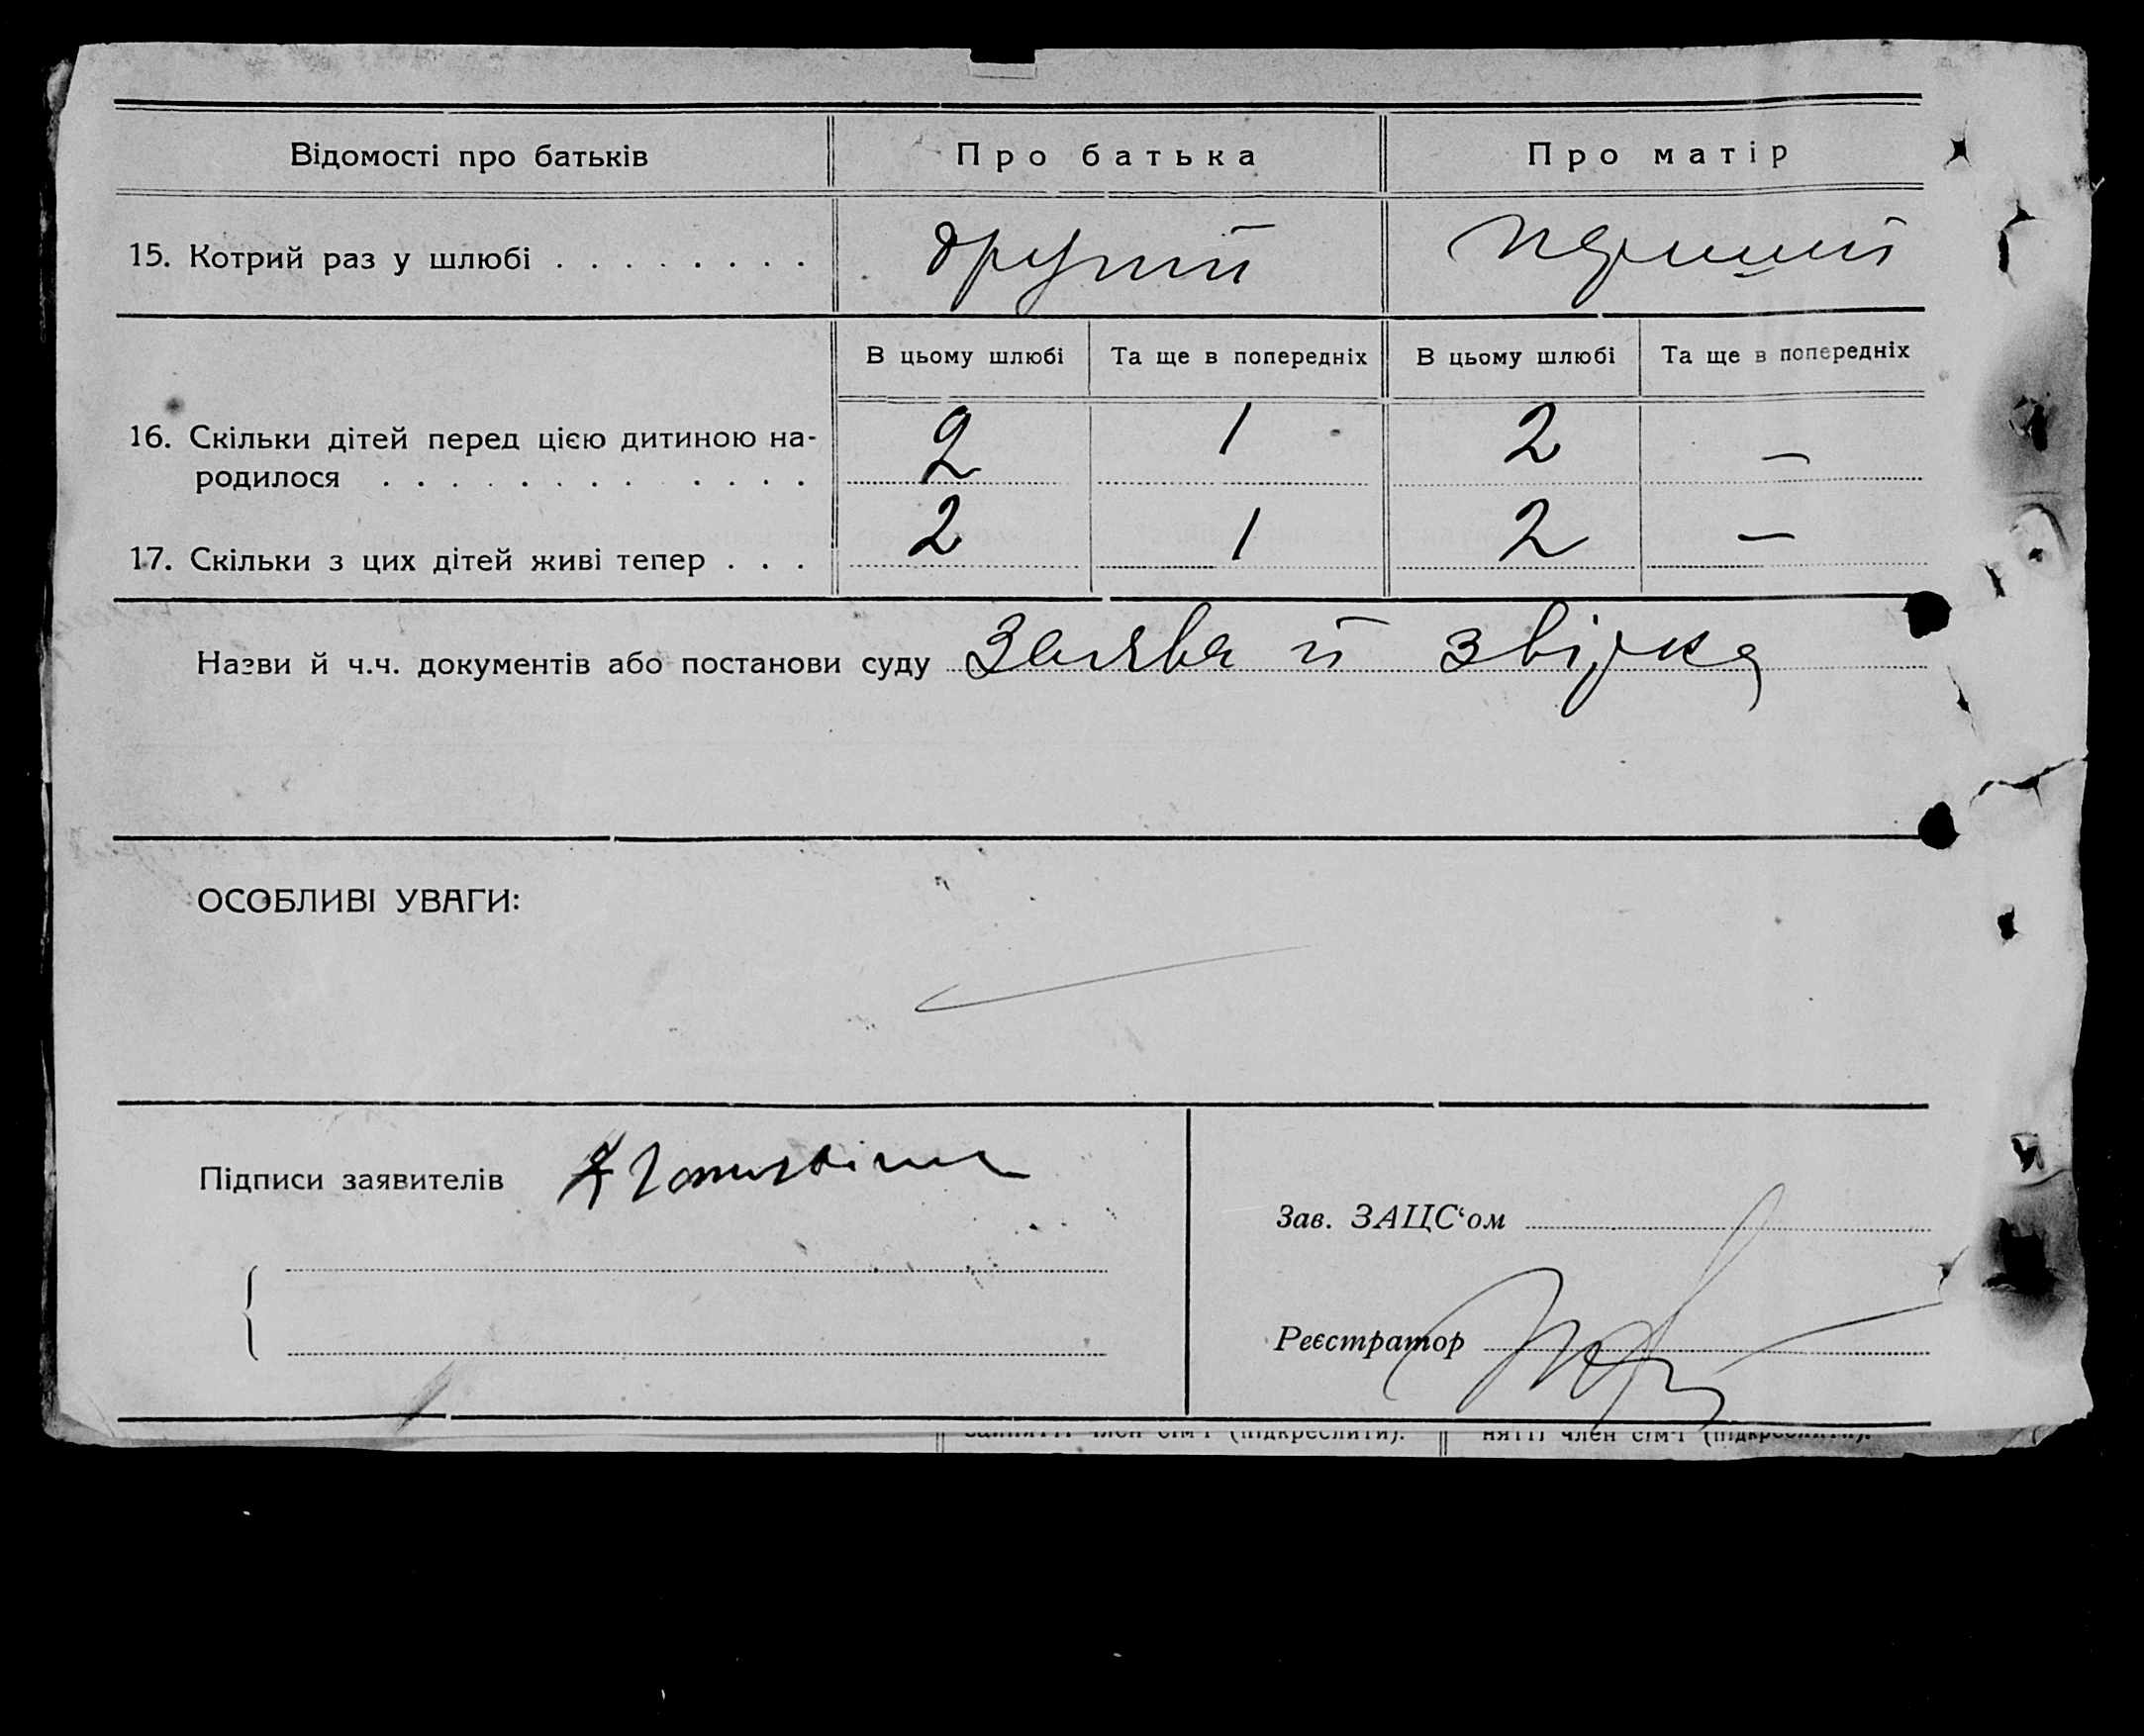 Відомості про батьків Про батька Про матір
15. Котрий раз у шлюбі . . . . . . . . другий перший
В цьому шлюбі Та ще в попередніх В цьому шлюбі Та ще в попередніх
16. Скільки дітей перед цією дитиною на-
родилося . . . . . . . . . . . . 2 1 2 —
17. Скільки з цих дітей живі тепер . . . 2 1 2 —
Назви й ч.ч. документів або постанови суду Заява й звірка
ОСОБЛИВІ УВАГИ:
Підписи заявителів
Зав. ЗАЦС‘ом
Реєстратор
член сім'ї (підкреслити). нятті член сім'ї (підкреслити).